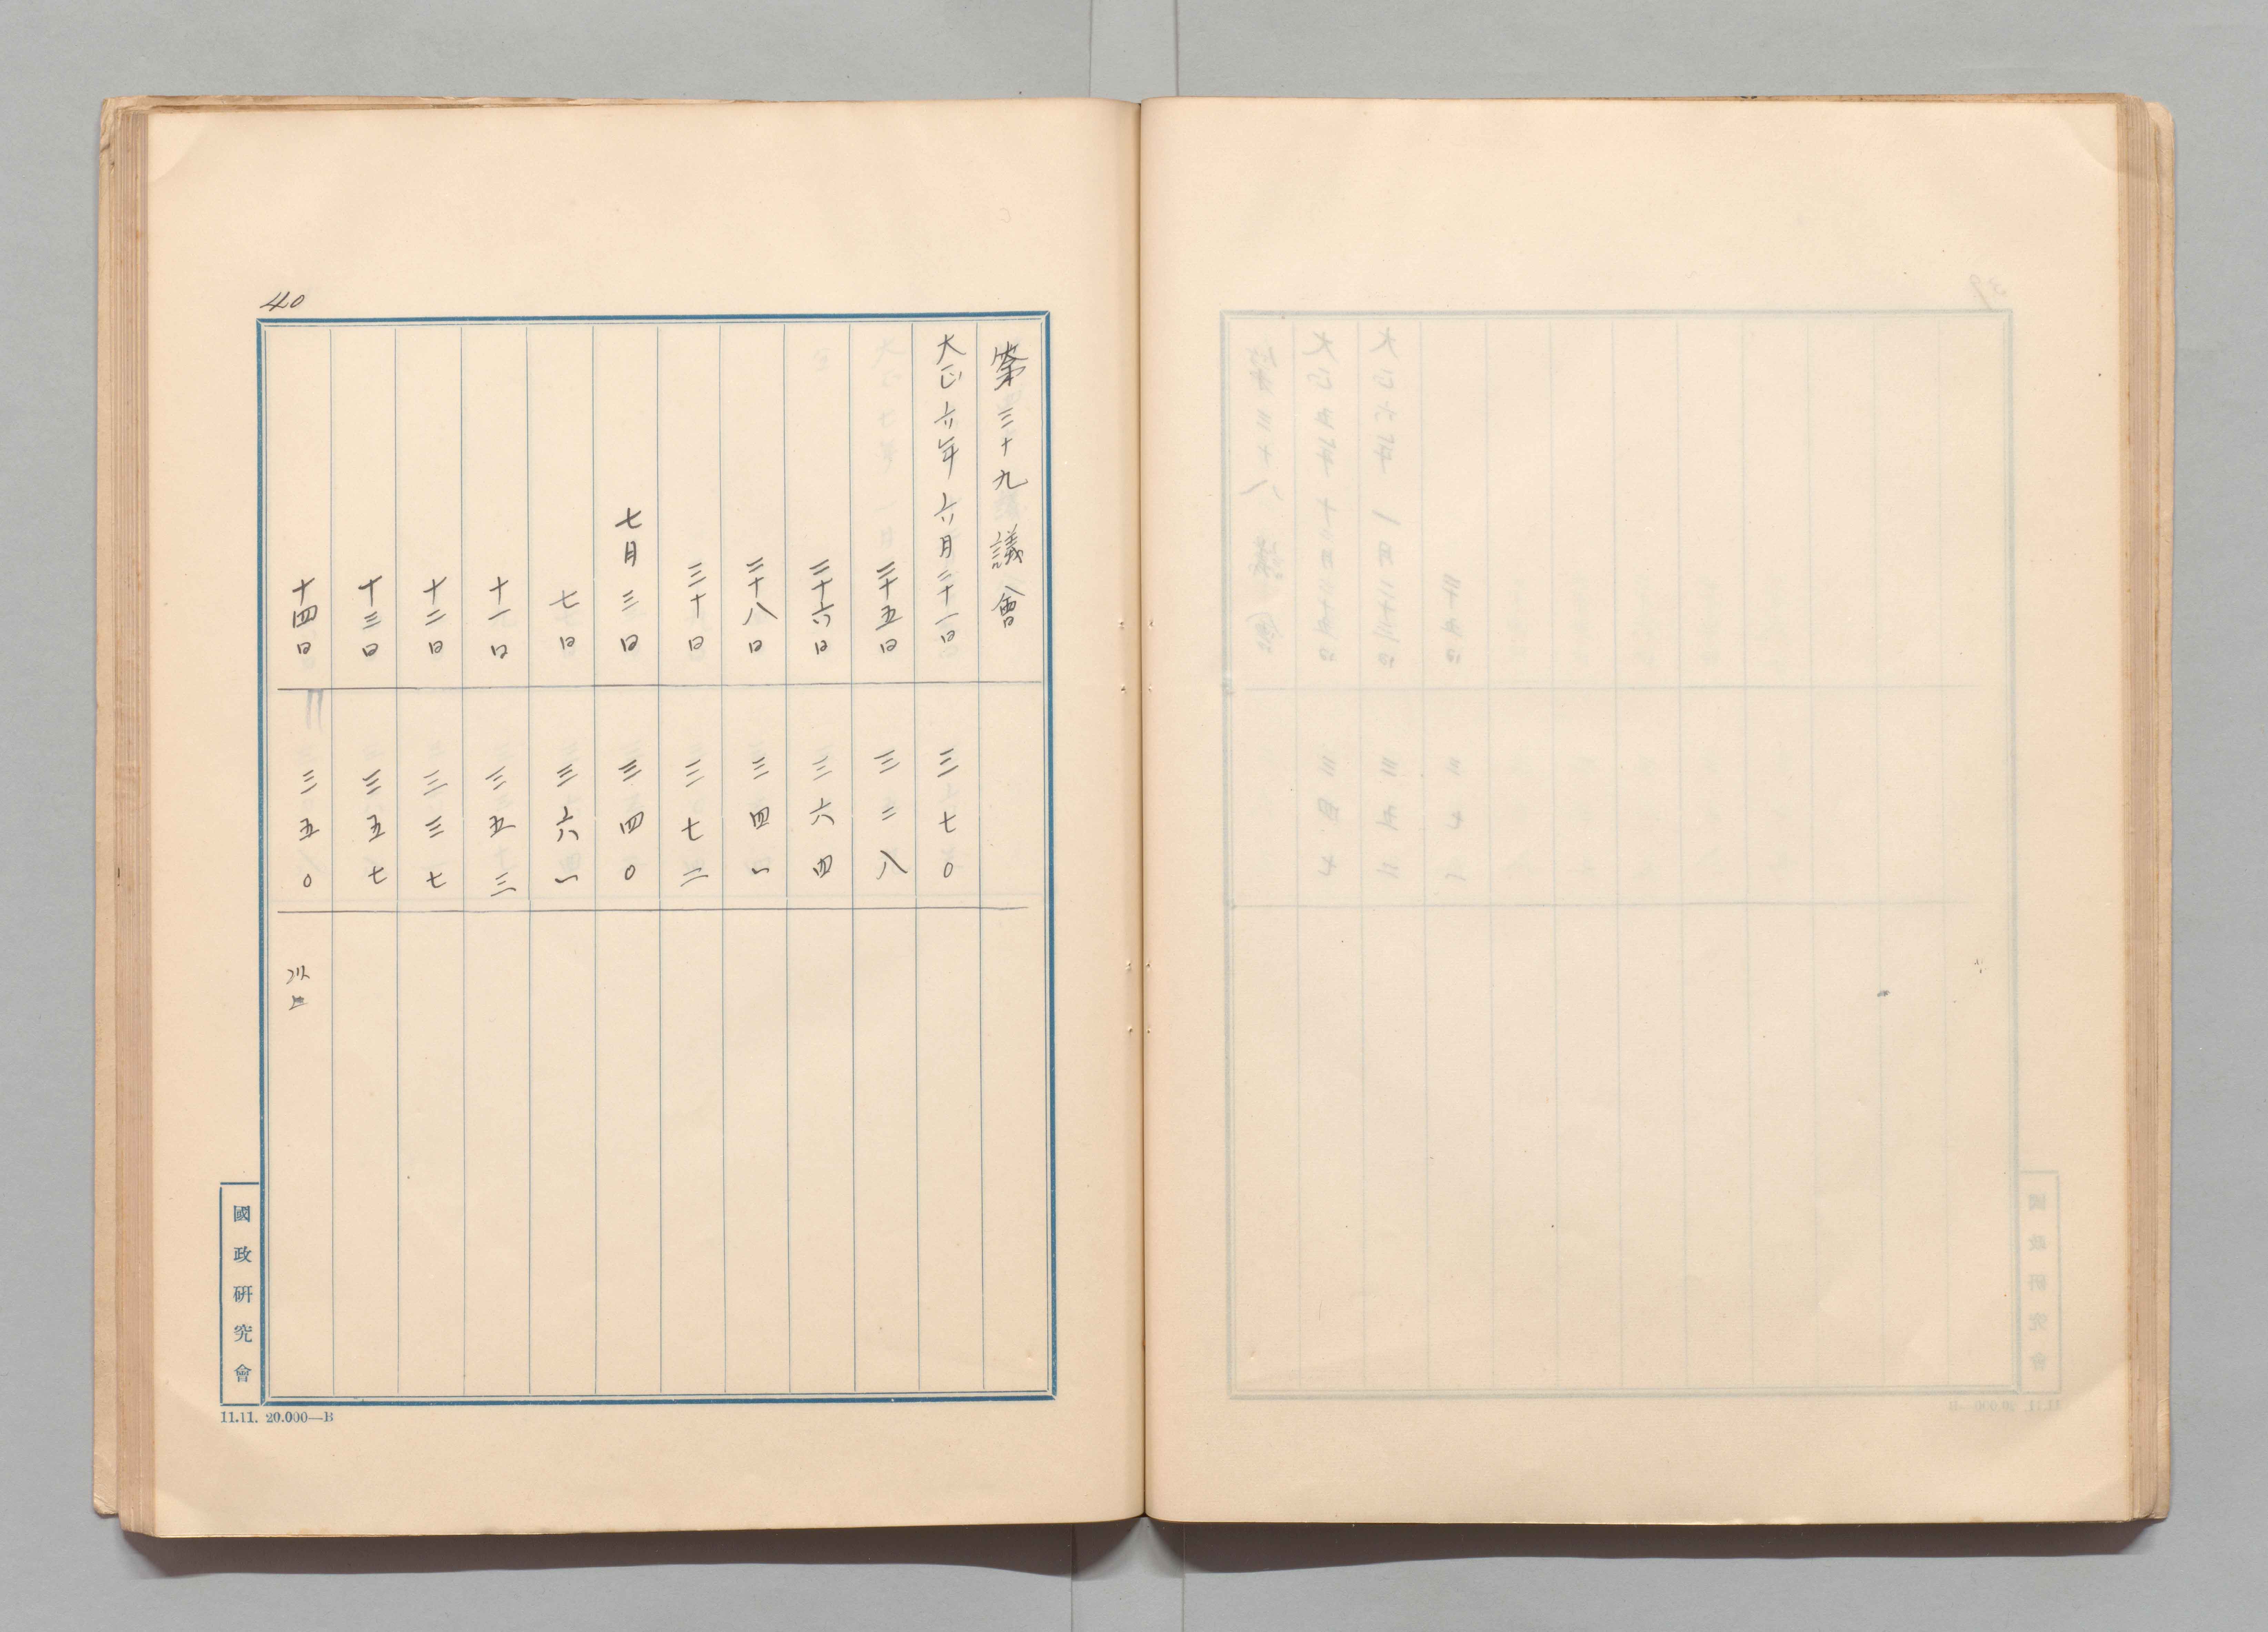 40
第三十九議會
大正六年六月二十一日 三七〇
二十五日 三二八
二十六日 三六四
二十八日 三四一
三十日 三七二
七月三日 三四〇
七日 三六一
十一日 三五十三
十二日 三三七
十三日 三五七
十四日 三五〇
國政硏究會
11.11. 20.000—B